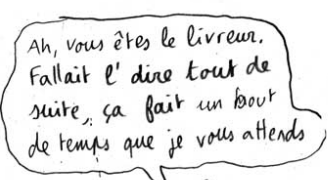 Ah, vous êtes le livreur.
Fallait l'dire tout de
suite, ça fait un bout
de temps que je vous attends